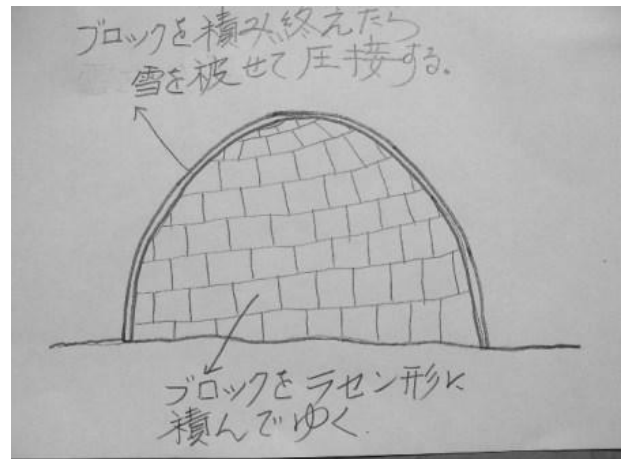 ブロックを積み終えたら
雪を被せて圧接する。
ブロックをラセン形に
積んでゆく